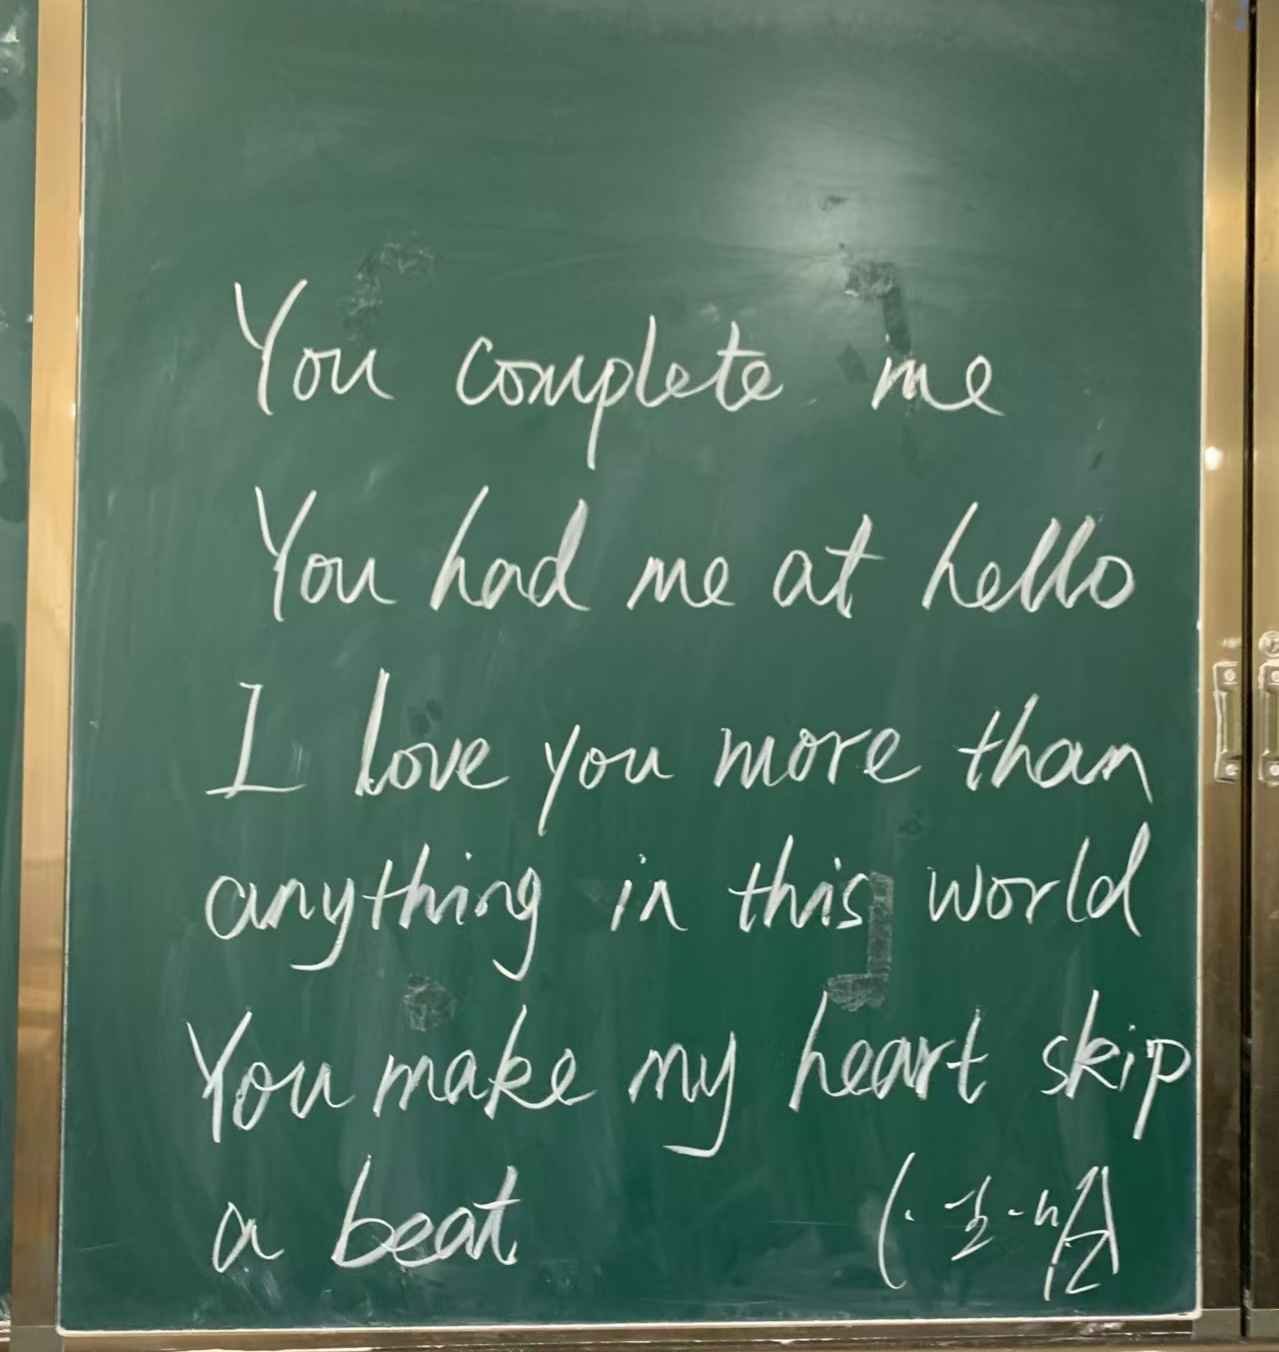 You complete me
You had me at hello
I love you more than
anything in this world
You make my heart skip
a beat